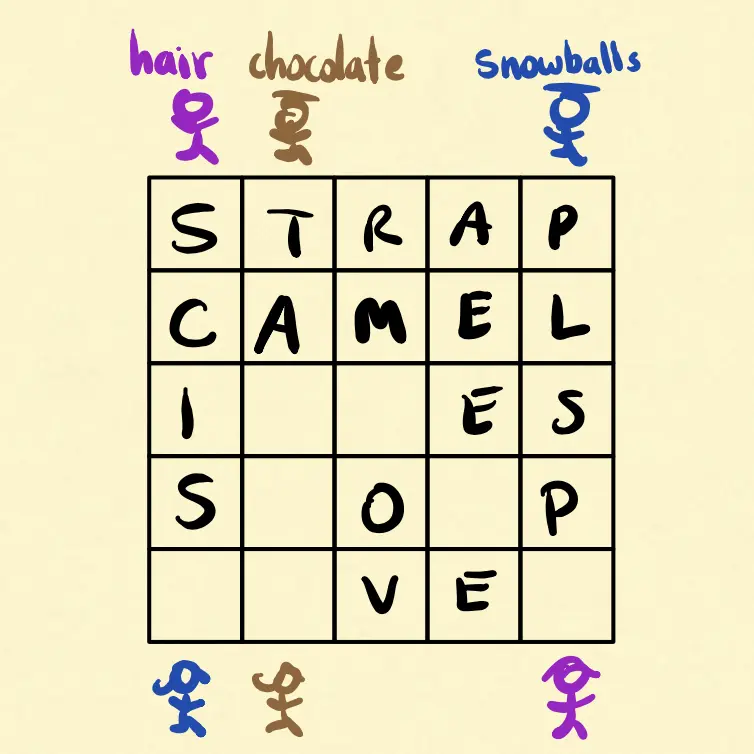 hair chocolate Snowballs
S T R A P
C A M E L
I E S
S O P
V E